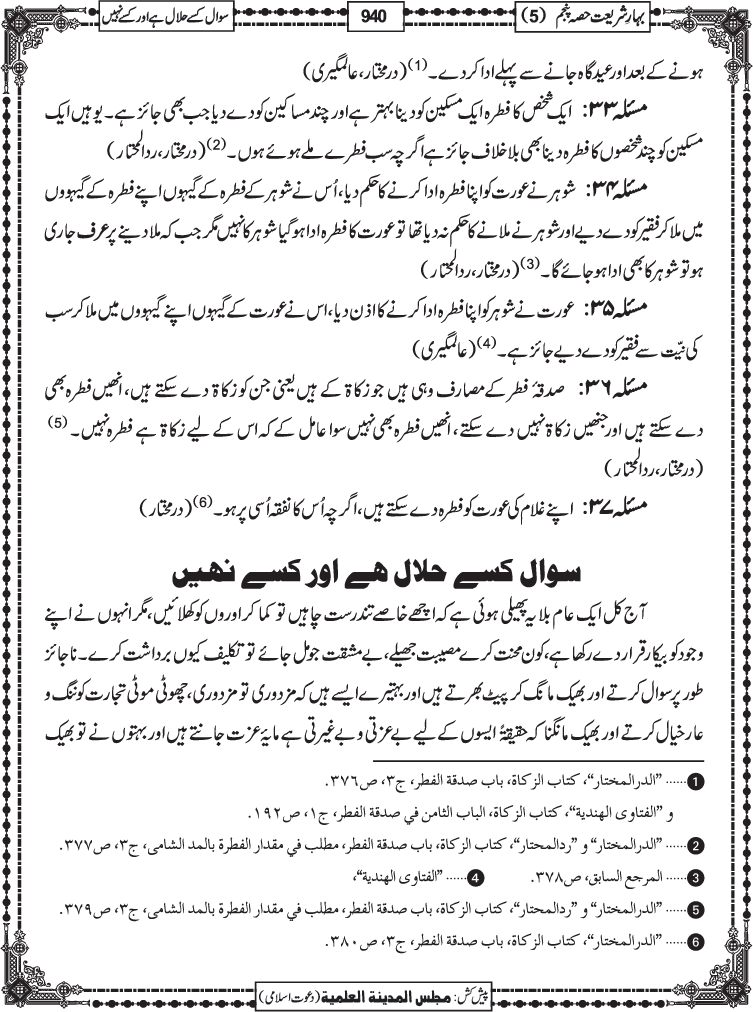 بہارِ شریعت حصہ پنجم (5)
940
سوال کسے حلال ہے اور کسے نہیں
ہونے کے بعد اور عیدگاہ جانے سے پہلے ادا کر دے۔ (1) (درمختار، عالمگیری)
مسئلہ ۳۳: ایک شخص کا فطرہ ایک مسکین کو دینا بہتر ہے اور چند مساکین کو دے دیا جب بھی جائز ہے۔ یوہیں ایک
مسکین کو چند شخصوں کا فطرہ دینا بھی بلا خلاف جائز ہے اگرچہ سب فطرے ملے ہوئے ہوں۔ (2) (درمختار، ردالمحتار)
مسئلہ ۳۴: شوہر نے عورت کو اپنا فطرہ ادا کرنے کا حکم دیا، اُس نے شوہر کے فطرہ کے گیہوں اپنے فطرہ کے گیہووں
میں ملا کر فقیر کو دے دیے اور شوہر نے ملانے کا حکم نہ دیا تھا تو عورت کا فطرہ ادا ہو گیا شوہر کا نہیں مگر جب کہ ملا دینے پر عرف جاری
ہو تو شوہر کا بھی ادا ہو جائے گا۔ (3) (درمختار، ردالمحتار)
مسئلہ ۳۵: عورت نے شوہر کو اپنا فطرہ ادا کرنے کا اذن دیا، اس نے عورت کے گیہوں اپنے گیہووں میں ملا کر سب
کی نیّت سے فقیر کو دے دیے جائز ہے۔ (4) (عالمگیری)
مسئلہ ۳۶: صدقۂ فطر کے مصارف وہی ہیں جو زکاۃ کے ہیں یعنی جن کو زکاۃ دے سکتے ہیں، انھیں فطرہ بھی
دے سکتے ہیں اور جنھیں زکاۃ نہیں دے سکتے، انھیں فطرہ بھی نہیں سوا عامل کے کہ اس کے لیے زکاۃ ہے فطرہ نہیں۔ (5)
(درمختار، ردالمحتار)
مسئلہ ۳۷: اپنے غلام کی عورت کو فطرہ دے سکتے ہیں، اگرچہ اُس کا نفقہ اُسی پر ہو۔ (6) (درمختار)
سوال کسے حلال ھے اور کسے نھیں
آج کل ایک عام بلا یہ پھیلی ہوئی ہے کہ اچھے خاصے تندرست چاہیں تو کما کر اوروں کو کھلائیں، مگر انہوں نے اپنے
وجود کو بیکار قرار دے رکھا ہے، کون محنت کرے مصیبت جھیلے، بے مشقت جو مل جائے تو تکلیف کیوں برداشت کرے۔ ناجائز
طور پر سوال کرتے اور بھیک مانگ کر پیٹ بھرتے ہیں اور بہتیرے ایسے ہیں کہ مزدوری تو مزدوری، چھوٹی موٹی تجارت کو ننگ و
عار خیال کرتے اور بھیک مانگنا کہ حقیقۃً ایسوں کے لیے بے عزتی و بے غیرتی ہے مایۂ عزت جانتے ہیں اور بہتوں نے تو بھیک
1 ...... ”الدرالمختار“، کتاب الزکاۃ، باب صدقۃ الفطر، ج۳، ص۳۷۶.
و ”الفتاوی الھندیۃ“، کتاب الزکاۃ، الباب الثامن في صدقۃ الفطر، ج۱، ص۱۹۲.
2 ...... ”الدرالمختار“ و ”ردالمحتار“، کتاب الزکاۃ، باب صدقۃ الفطر، مطلب في مقدار الفطرۃ بالمد الشامی، ج۳، ص۳۷۷.
3 ...... المرجع السابق، ص۳۷۸. 4 ...... ”الفتاوی الھندیۃ“،
5 ...... ”الدرالمختار“ و ”ردالمحتار“، کتاب الزکاۃ، باب صدقۃ الفطر، مطلب في مقدار الفطرۃ بالمد الشامی، ج۳، ص۳۷۹.
6 ...... ”الدرالمختار“، کتاب الزکاۃ، باب صدقۃ الفطر، ج۳، ص۳۸۰.
پیش کش: مجلس المدینۃ العلمیۃ (دعوت اسلامی)